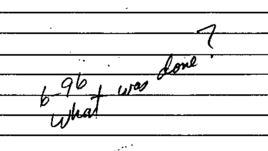 6-96
What was done?